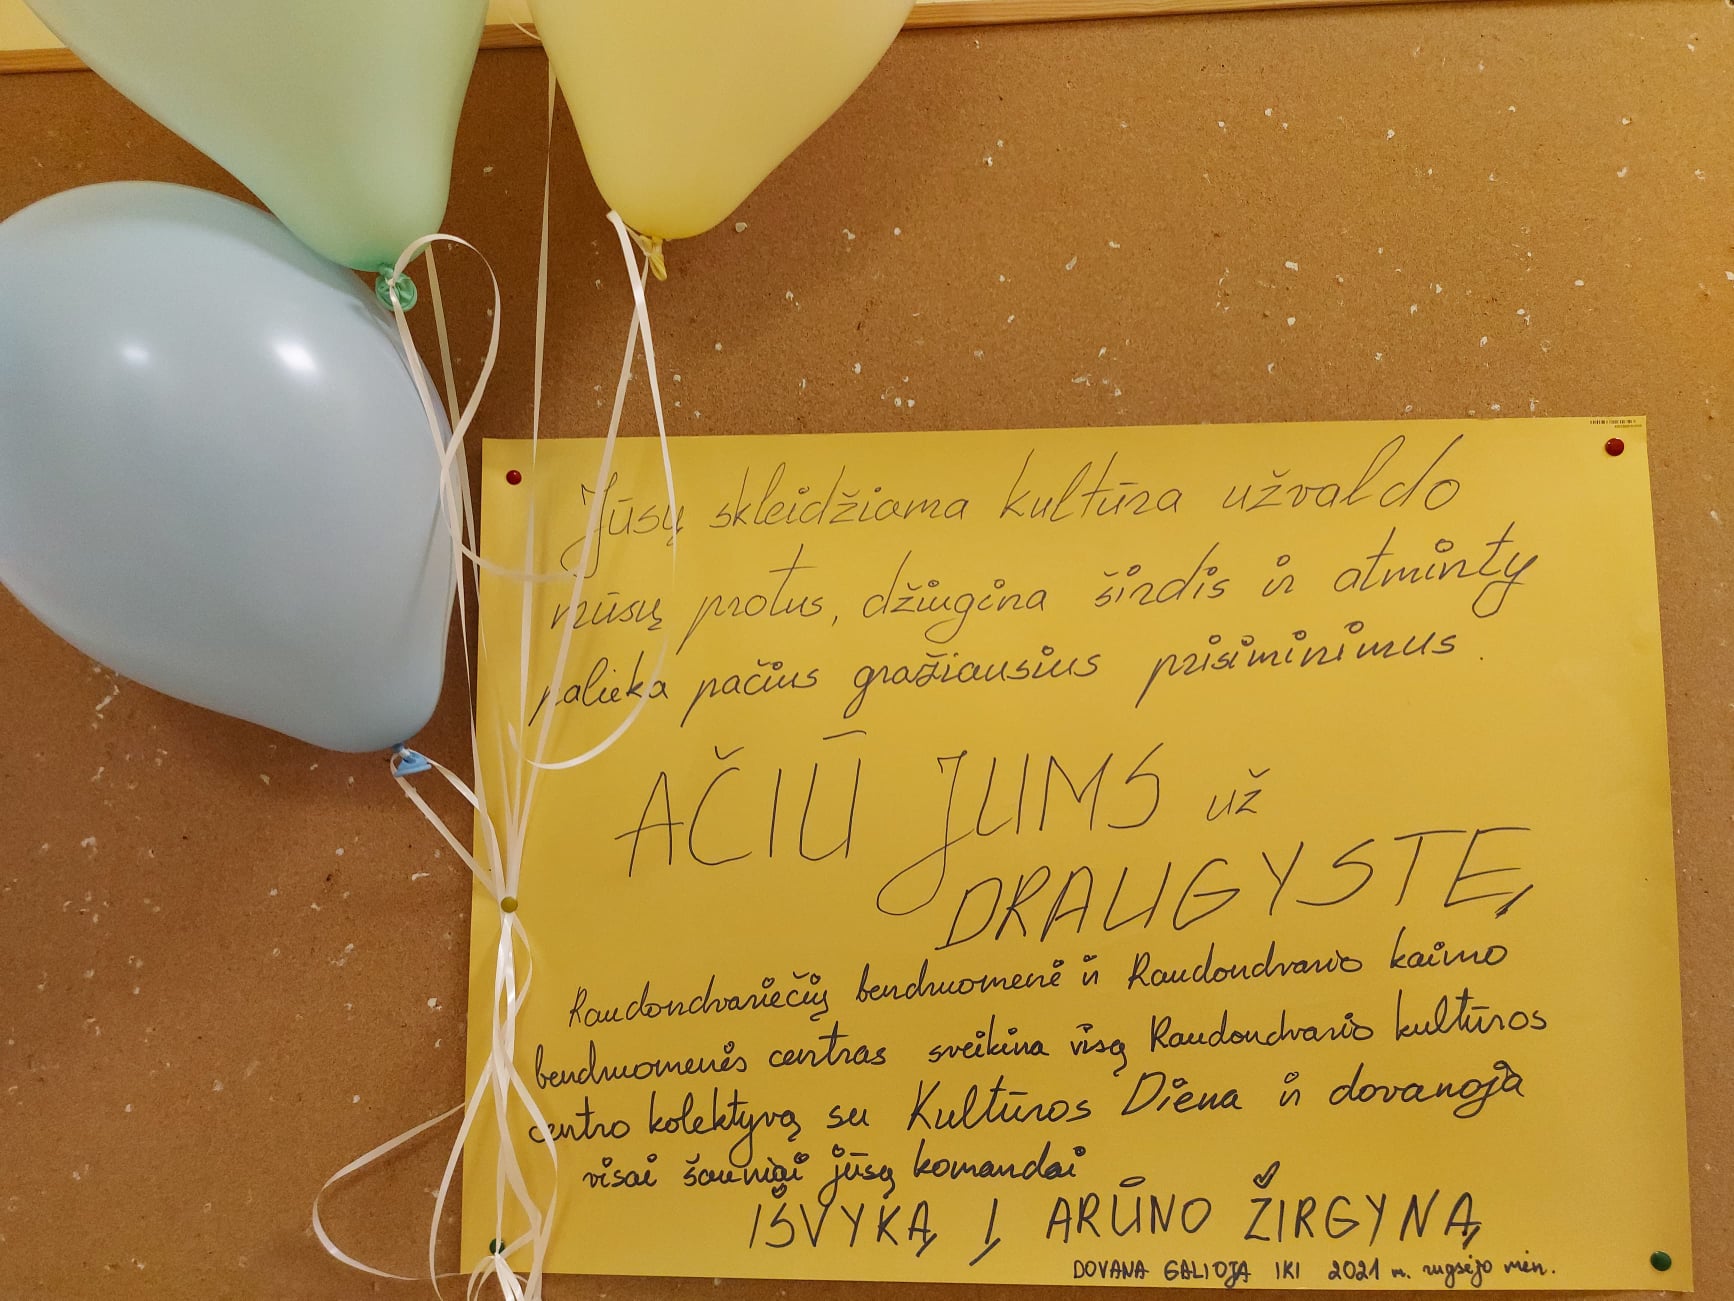 Jūsų skleidžiama kultūra užvaldo
mūsų protus, džiugina širdis ir atminty
palieka pačius gražiausius prisiminimus.
AČIŪ JUMS už
DRAUGYSTĘ,
Raudondvariečių bendruomenė ir Raudondvario kaimo
bendruomenės centras sveikina visą Raudondvario kultūros
centro kolektyvą su Kultūros Diena ir dovanoja
visai šauniai jūsų komandai
IŠVYKĄ Į ARŪNO ŽIRGYNĄ
DOVANA GALIOJA IKI 2021 m. rugsėjo mėn.